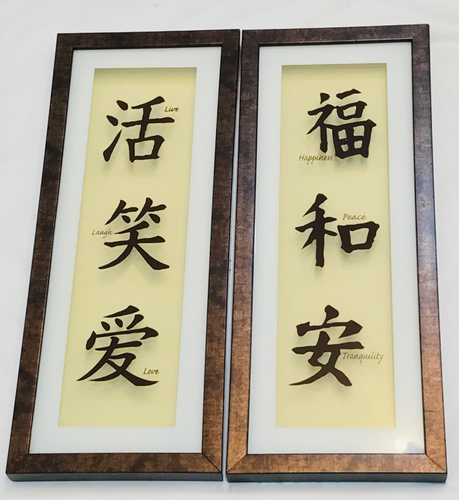 活
Live
笑
Laugh
爱
Love
福
Happiness
和
Peace
安
Tranquility